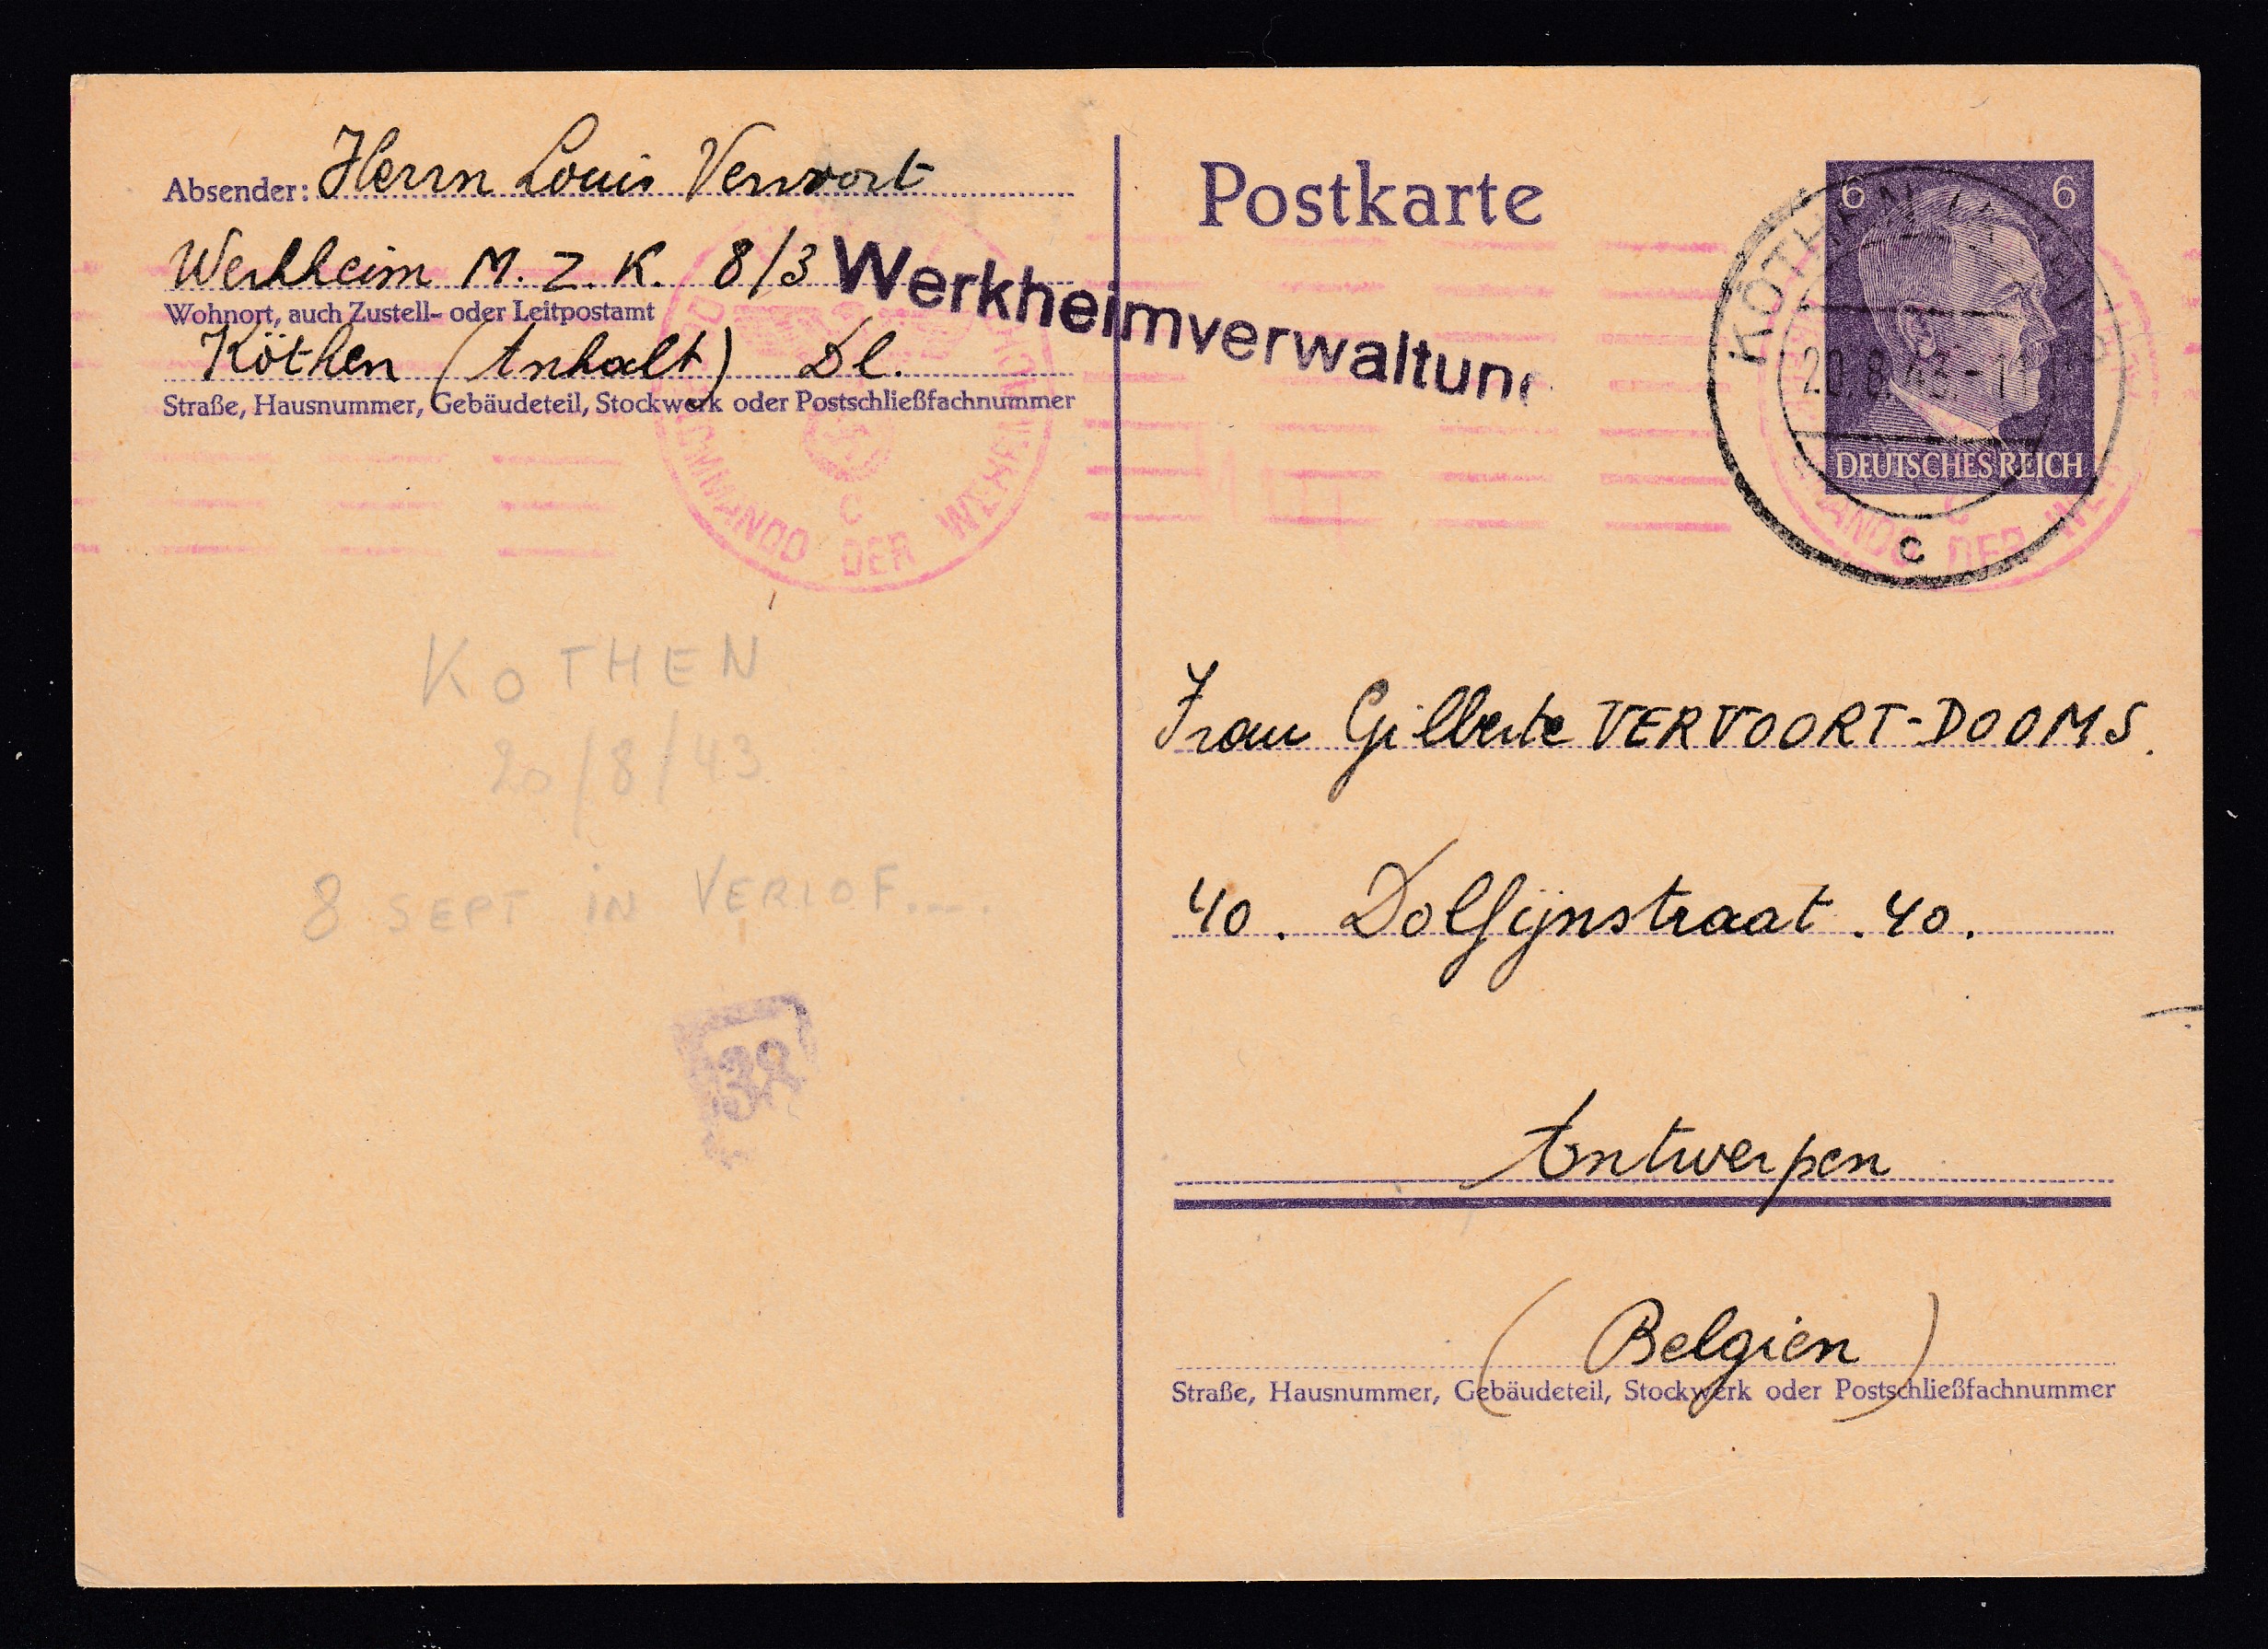 Absender: Herrn Louis Vervoort
Werkheim M. Z. K. 8/3
Wohnort, auch Zustell- oder Leitpostamt
Köthen (Anhalt) Dl.
Straße, Hausnummer, Gebäudeteil, Stockwerk oder Postschließfachnummer
Werkheimverwaltung
KOMMANDO DER WEHRMACHT
C
KOTHEN
20/8/43
8 SEPT IN VERLOF....
38
Postkarte
6 6
DEUTSCHES REICH
KÖTHEN (ANHALT)
20.8.43.-11
c
MANDO DER WE
C
Frau Gilberte VERVOORT-DOOMS.
40. Dolfijnstraat. 40.
Antwerpen
(Belgien)
Straße, Hausnummer, Gebäudeteil, Stockwerk oder Postschließfachnummer